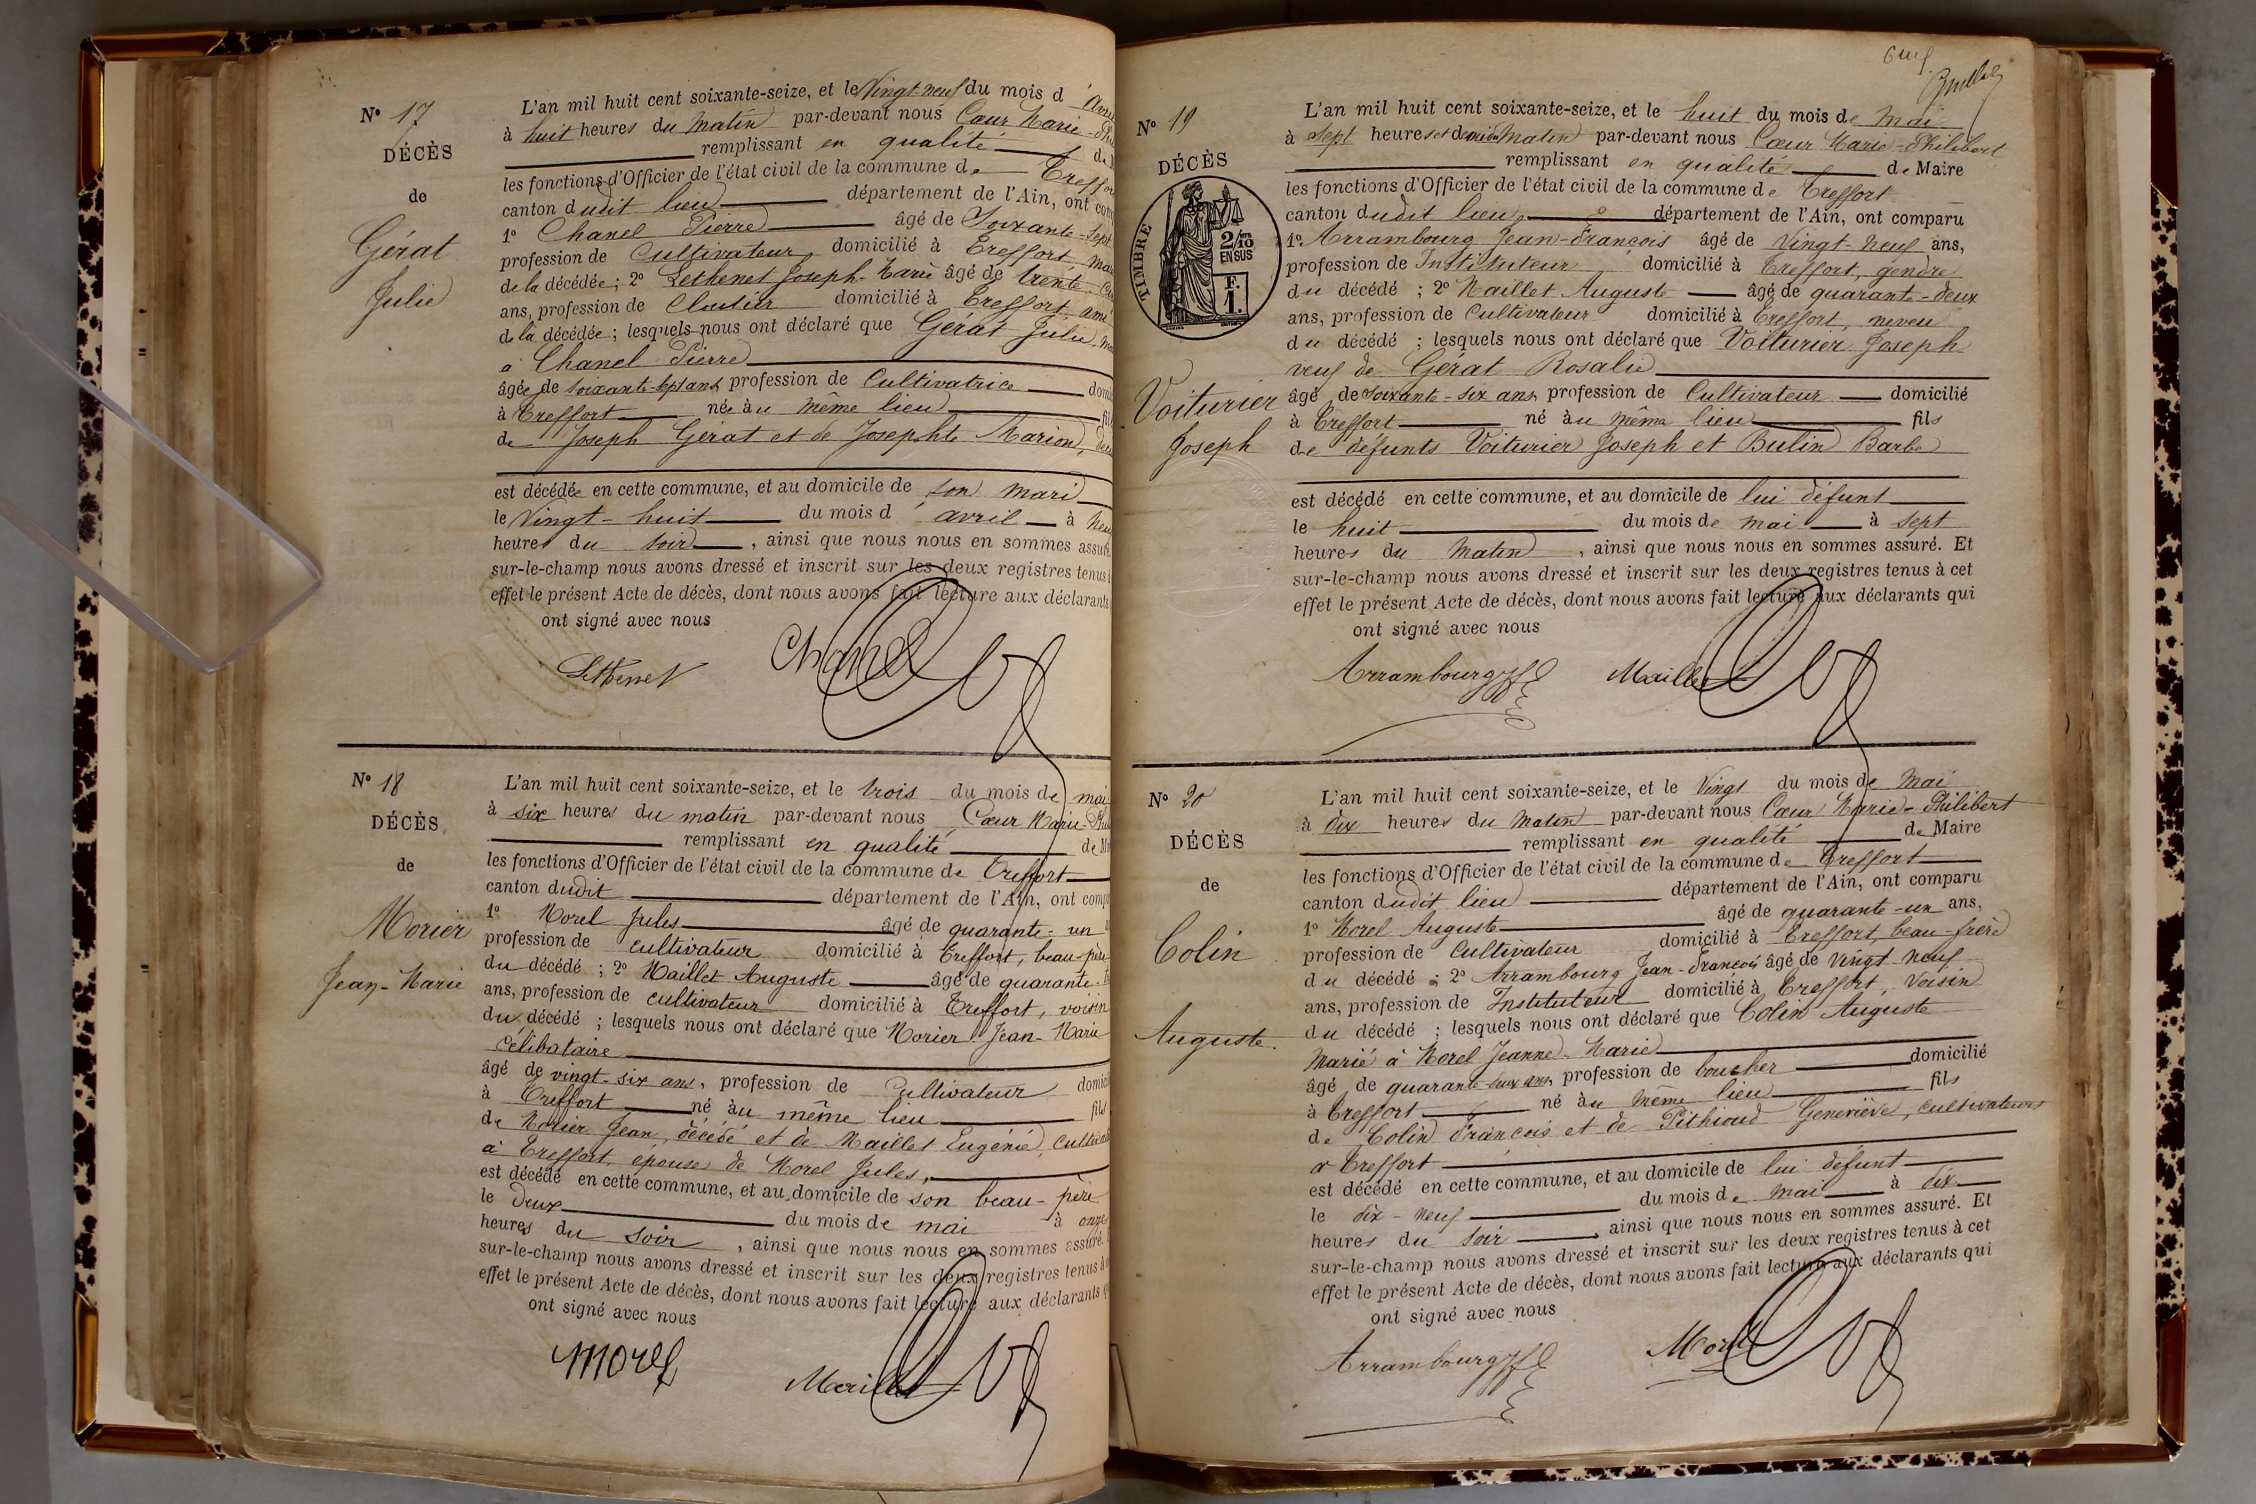 N° 17
DÉCÈS
de
Gérat
Julie
L'an mil huit cent soixante-seize, et le Vingt-neuf du mois d'
à huit heures du matin par-devant nous Cœur Marie-
remplissant en qualité
les fonctions d'Officier de l'état civil de la commune de
canton dudit lieu département de l'Ain, ont
1° Chanel Pierre âgé de Soixante-sept
profession de Cultivateur domicilié à Treffort,
de la décédée; 2° Lethenet Joseph-Marie âgé de trente-
ans, profession de Cloutier domicilié à Treffort, ami
de la décédée; lesquels nous ont déclaré que Gérat Julie,
à Chanel Pierre
âgée de soixante-sept ans, profession de Cultivatrice
à Treffort née au même lieu
de Joseph Gérat et de Josephte Marion,
est décédée en cette commune, et au domicile de son mari
le Vingt-huit du mois d'avril à
heures du soir, ainsi que nous nous en sommes
sur-le-champ nous avons dressé et inscrit sur les deux registres tenus
effet le présent Acte de décès, dont nous avons fait lecture aux déclarants
ont signé avec nous
Lethenet Chanel
N° 18
DÉCÈS
de
Morier
Jean-Marie
L'an mil huit cent soixante-seize, et le trois du mois de mai
à six heures du matin par-devant nous Cœur Marie-
remplissant en qualité de
les fonctions d'Officier de l'état civil de la commune de Treffort
canton dudit département de l'Ain, ont
1° Morel Jules âgé de quarante-un
profession de cultivateur domicilié à Treffort, beau-père
du décédé; 2° Maillet Auguste âgé de quarante-
ans, profession de cultivateur domicilié à Treffort, voisin
du décédé; lesquels nous ont déclaré que Morier Jean-Marie
célibataire
âgé de vingt-six ans, profession de Cultivateur
à Treffort né au même lieu fils
de Morier Jean, décédé et de Maillet Eugénie,
à Treffort, épouse de Morel Jules,
est décédé en cette commune, et au domicile de son beau-père
le deux du mois de mai à onze
heures du soir, ainsi que nous nous en sommes assuré.
sur-le-champ nous avons dressé et inscrit sur les deux registres tenus à
effet le présent Acte de décès, dont nous avons fait lecture aux déclarants
ont signé avec nous
Morel
Maillet
N° 19
DÉCÈS
TIMBRE
2/10
EN SUS
F.
1.
Voiturier
Joseph
L'an mil huit cent soixante-seize, et le huit du mois de mai
à sept heures et demie du matin par-devant nous Cœur Marie-Philibert
remplissant en qualité de Maire
les fonctions d'Officier de l'état civil de la commune de Treffort
canton dudit lieu département de l'Ain, ont comparu
1° Arrambourg Jean-François âgé de vingt-neuf ans,
profession de Instituteur domicilié à Treffort, gendre
du décédé; 2° Maillet Auguste âgé de quarante-deux
ans, profession de Cultivateur domicilié à Treffort, neveu
du décédé; lesquels nous ont déclaré que Voiturier Joseph
veuf de Gérat Rosalie
âgé de soixante-six ans, profession de Cultivateur domicilié
à Treffort né au même lieu fils
de défunts Voiturier Joseph et Bulin Barbe
est décédé en cette commune, et au domicile de lui défunt
le huit du mois de mai à sept
heures du matin, ainsi que nous nous en sommes assuré. Et
sur-le-champ nous avons dressé et inscrit sur les deux registres tenus à cet
effet le présent Acte de décès, dont nous avons fait lecture aux déclarants qui
ont signé avec nous
Arrambourg Maillet
N° 20
DÉCÈS
de
Colin
Auguste.
L'an mil huit cent soixante-seize, et le Vingt du mois de mai
à dix heures du matin par-devant nous Cœur Marie-Philibert
remplissant en qualité de Maire
les fonctions d'Officier de l'état civil de la commune de Treffort
canton dudit lieu département de l'Ain, ont comparu
1° Morel Auguste âgé de quarante-un ans,
profession de Cultivateur domicilié à Treffort, beau-frère
du décédé; 2° Arrambourg Jean-François âgé de vingt-neuf
ans, profession de Instituteur domicilié à Treffort, voisin
du décédé; lesquels nous ont déclaré que Colin Auguste
marié à Morel Jeanne-Marie
âgé de quarante-deux ans, profession de boucher domicilié
à Treffort né au même lieu fils
de Colin François et de Pithioud Geneviève, cultivateurs
à Treffort
est décédé en cette commune, et au domicile de lui défunt
le dix-neuf du mois de mai à dix
heures du soir, ainsi que nous nous en sommes assuré. Et
sur-le-champ nous avons dressé et inscrit sur les deux registres tenus à cet
effet le présent Acte de décès, dont nous avons fait lecture aux déclarants qui
ont signé avec nous
Arrambourg Morel